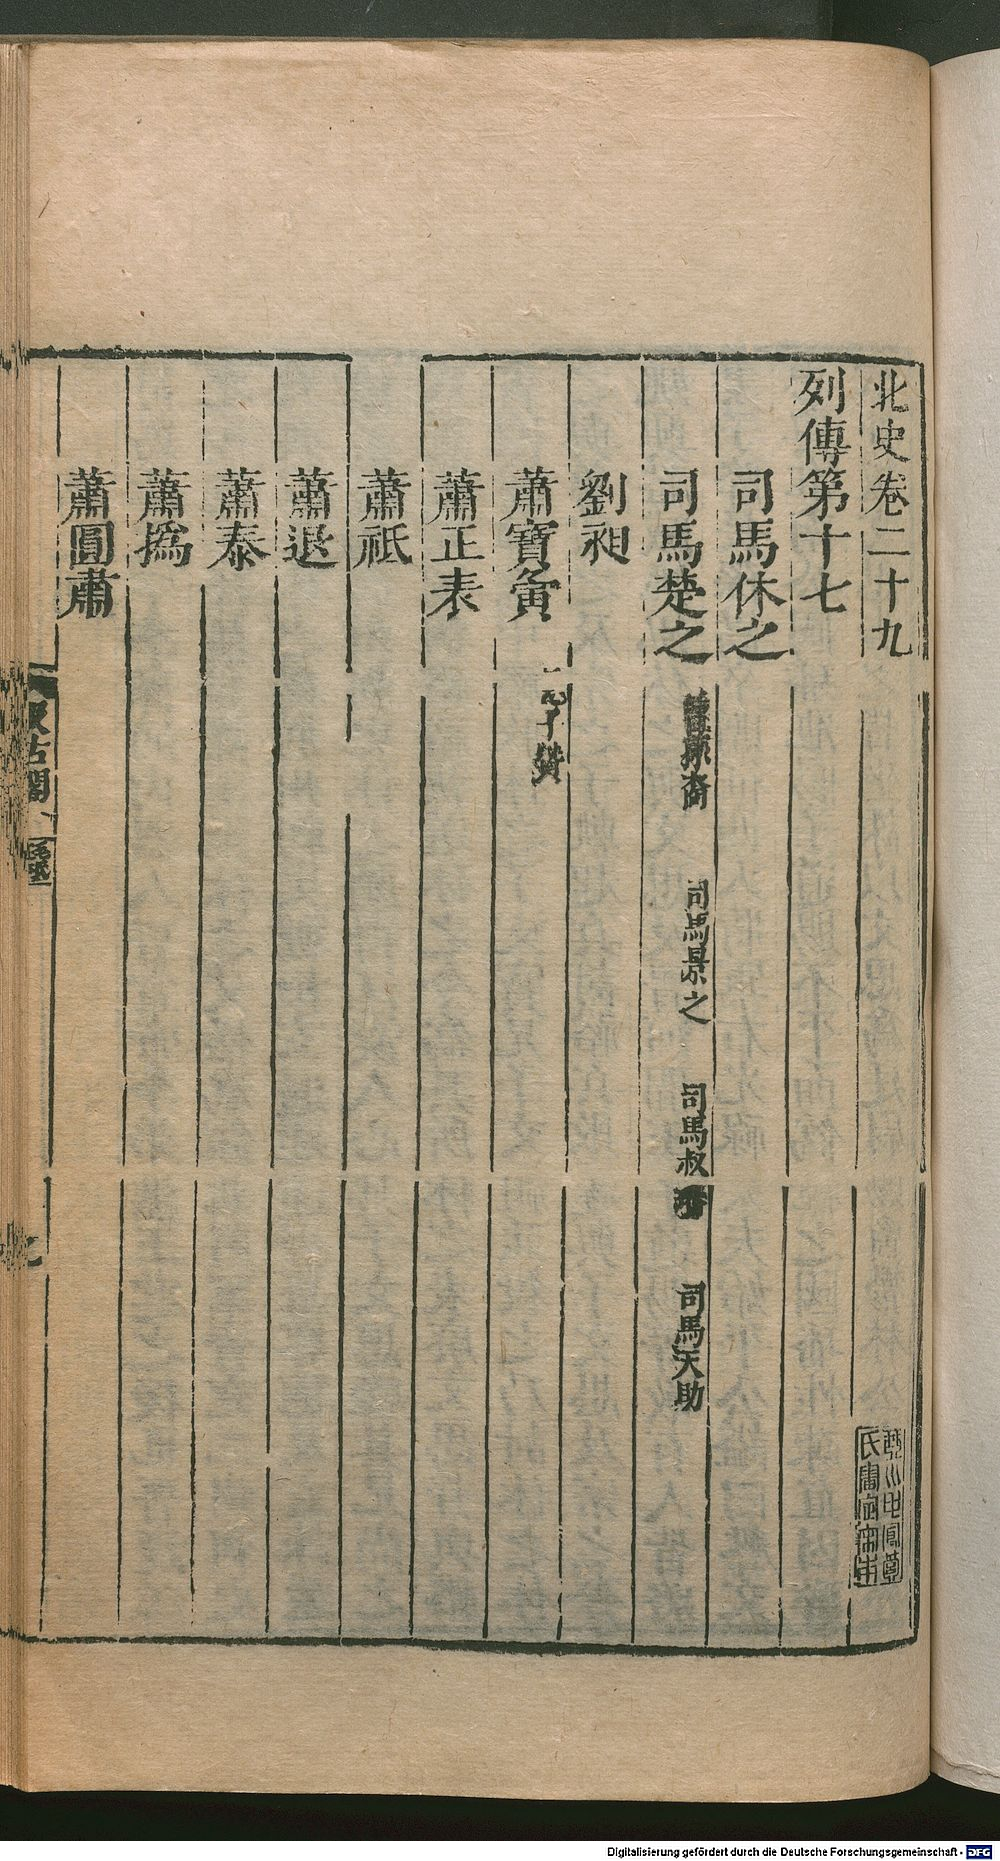 北史卷二十九
列傳第十七
司馬休之
司馬楚之 裔 司馬景之 司馬叔璠 司馬天助
劉昶
蕭寶夤 兄子贊
蕭正表
蕭祗
蕭退
蕭泰
蕭撝
蕭圓肅
汲古閣 毛氏
Digitalisierung gefördert durch die Deutsche Forschungsgemeinschaft - DFG